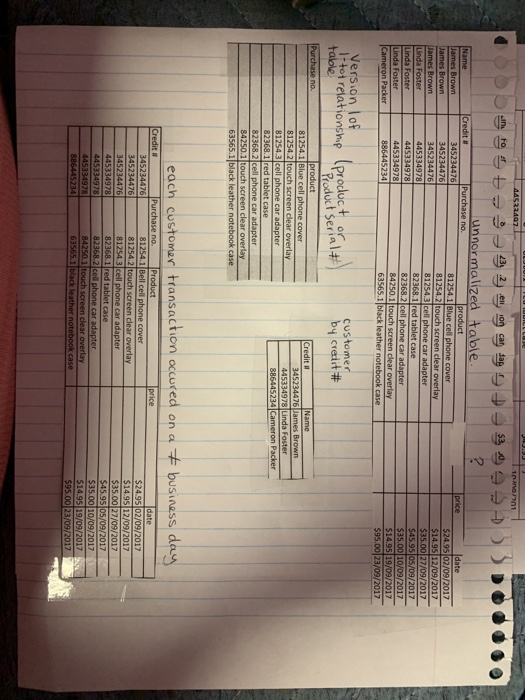 44533497
unnormalized table. ?
Name Credit # Purchase no. product price date
James Brown 345234476 81254.1 Blue cell phone cover $24.95 02/09/2017
James Brown 345234476 81254.2 touch screen clear overlay $14.95 12/09/2017
James Brown 345234476 81254.3 cell phone car adapter $35.00 27/09/2017
Linda Foster 445334978 82368.1 red tablet case $45.95 05/09/2017
Linda Foster 445334978 82368.2 cell phone car adapter $35.00 10/09/2017
Linda Foster 445334978 84250.1 touch screen clear overlay $14.95 19/09/2017
Cameron Packer 886445234 63565.1 black leather notebook case $95.00 23/09/2017
Version 1 of
1-to1 relationship (product or
table. Product serial #)
Purchase no. product
81254.1 Blue cell phone cover
81254.2 touch screen clear overlay
81254.3 cell phone car adapter
82368.1 red tablet case
82368.2 cell phone car adapter
84250.1 touch screen clear overlay
63565.1 black leather notebook case
customer
by credit #
Credit # Name
345234476 James Brown
445334978 Linda Foster
886445234 Cameron Packer
each customer transaction occured on a business day
Credit # Purchase no. Product price date
345234476 81254.1 Bell cell phone cover $24.95 02/09/2017
345234476 81254.2 touch screen clear overlay $14.95 12/09/2017
345234476 81254.3 cell phone car adapter $35.00 27/09/2017
445334978 82368.1 red tablet case $45.95 05/09/2017
445334978 82368.2 cell phone car adapter $35.00 10/09/2017
445334978 84250.1 touch screen clear overlay $14.95 19/09/2017
886445234 63565.1 black leather notebook case $95.00 23/09/2017